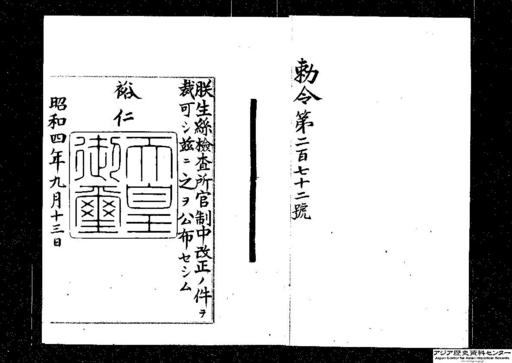 勅令第二百七十二號
朕生絲檢査所官制中改正ノ件ヲ
裁可シ茲ニ之ヲ公布セシム
裕仁
天皇御璽
昭和四年九月十三日
アジア歴史資料センター
Japan Center for Asian Historical Records